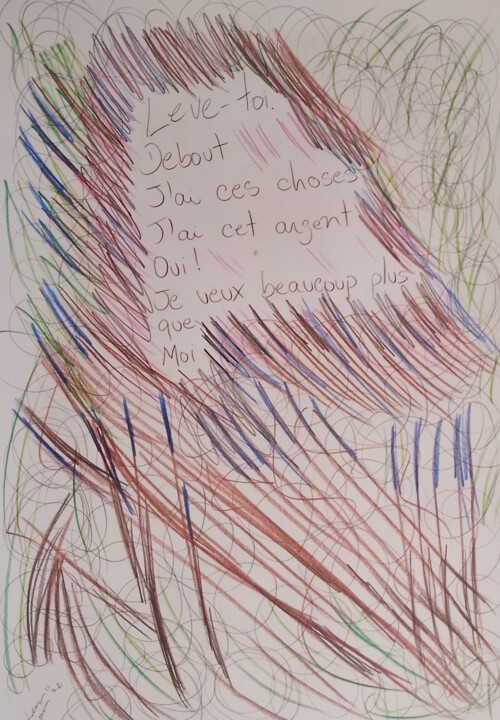 Leve-toi.
Debout
J'ai ces choses
J'ai cet argent
Oui!
Je veux beaucoup plus
que
Moi